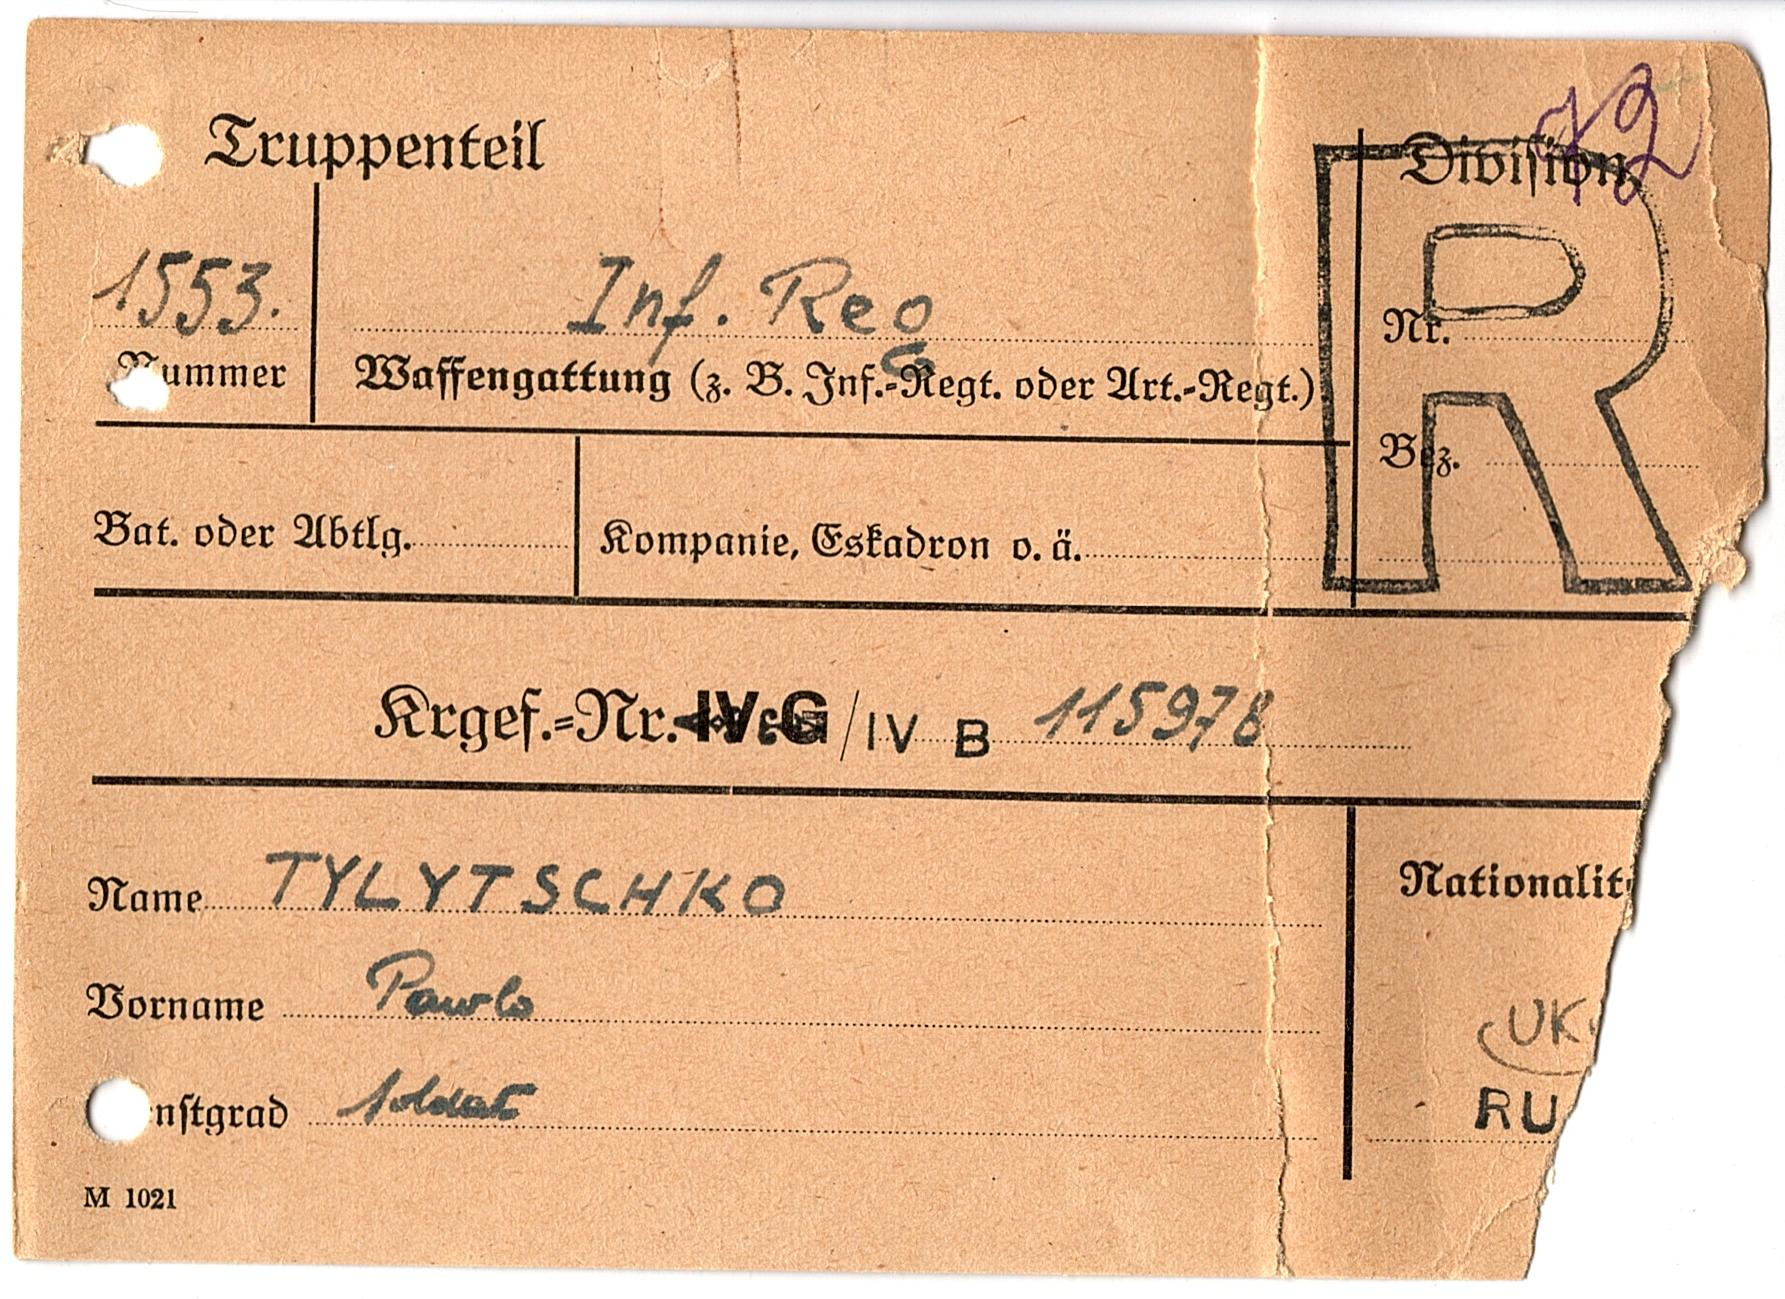 Truppenteil
Division
R
1553.
Inf. Reg
Nr.
ummer
Waffengattung (z. B. Inf.-Regt. oder Art.-Regt.)
Bez.
Bat. oder Abtlg.
Kompanie, Eskadron o. ä.
Krgef.-Nr. IV G / IV B 115978
Name TYLYTSCHKO
Nationalit
Vorname Pawlo
UK
nstgrad soldat
RU
M 1021